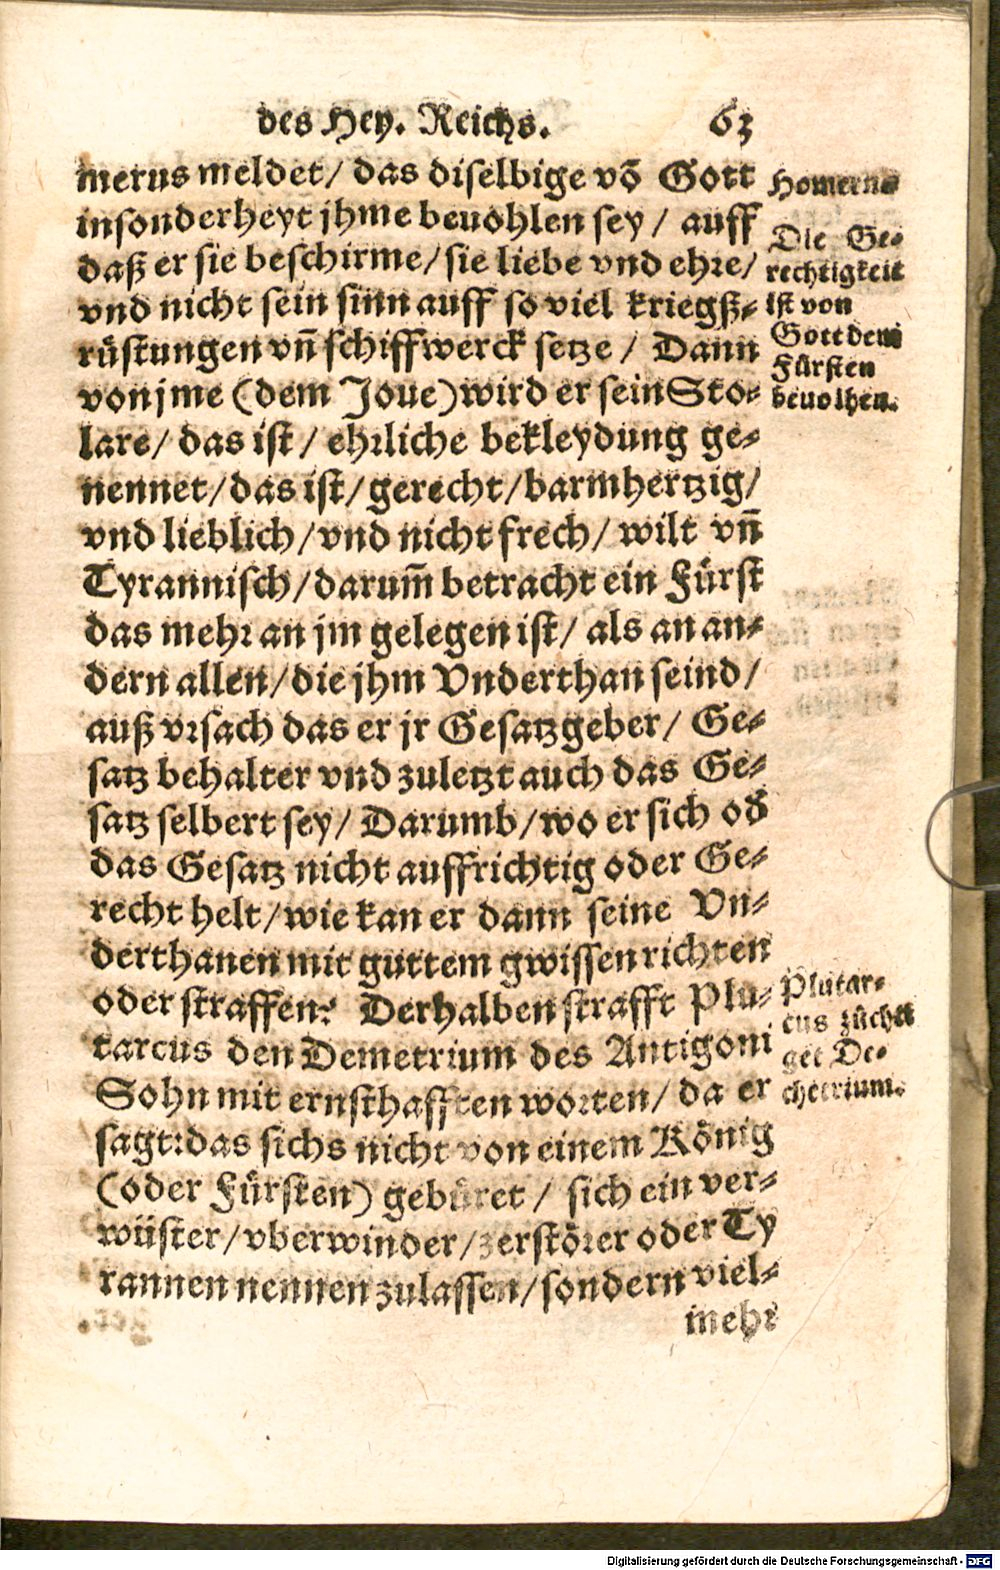 des Hey. Reichs. 63
merus meldet/ das diselbige võ Gott
insonderheyt jhme beuohlen sey/ auff
daß er sie beschirme/ sie liebe vnd ehre/
vnd nicht sein sinn auff so viel kriegß-
rüstungen vñ schiffwerck setze/ Dann
von jme (dem Joue) wird er sein Sto-
lare/ das ist/ ehrliche bekleydung ge-
nennet/ das ist/ gerecht/ barmhertzig/
vnd lieblich/ vnd nicht frech/ wilt vñ
Tyrannisch/ darum̃ betracht ein Fürst
das mehr an jm gelegen ist/ als an an-
dern allen/ die jhm Vnderthan seind/
auß vrsach das er jr Gesatzgeber/ Ge-
satz behalter vnd zuletzt auch das Ge-
satz selbert sey/ Darumb/ wo er sich od̃
das Gesatz nicht auffrichtig oder Ge-
recht helt/ wie kan er dann seine Vn-
derthanen mit guttem gwissen richten
oder straffen? Derhalben strafft Plu-
tarcus den Demetrium des Antigoni
Sohn mit ernsthafften worten/ da er
sagt: das sichs nicht von einem König
(oder Fürsten) gebüret/ sich ein ver-
wüster/ vberwinder/ zerstörer oder Ty
rannen nennen zulassen/ sondern viel-
mehr
Homerus
Die Ge-
rechtigkeit
ist von
Gott dem
Fürsten
beuolhen.
Plutar-
cus züchti
get De-
Digitalisierung gefördert durch die Deutsche Forschungsgemeinschaft - DFG